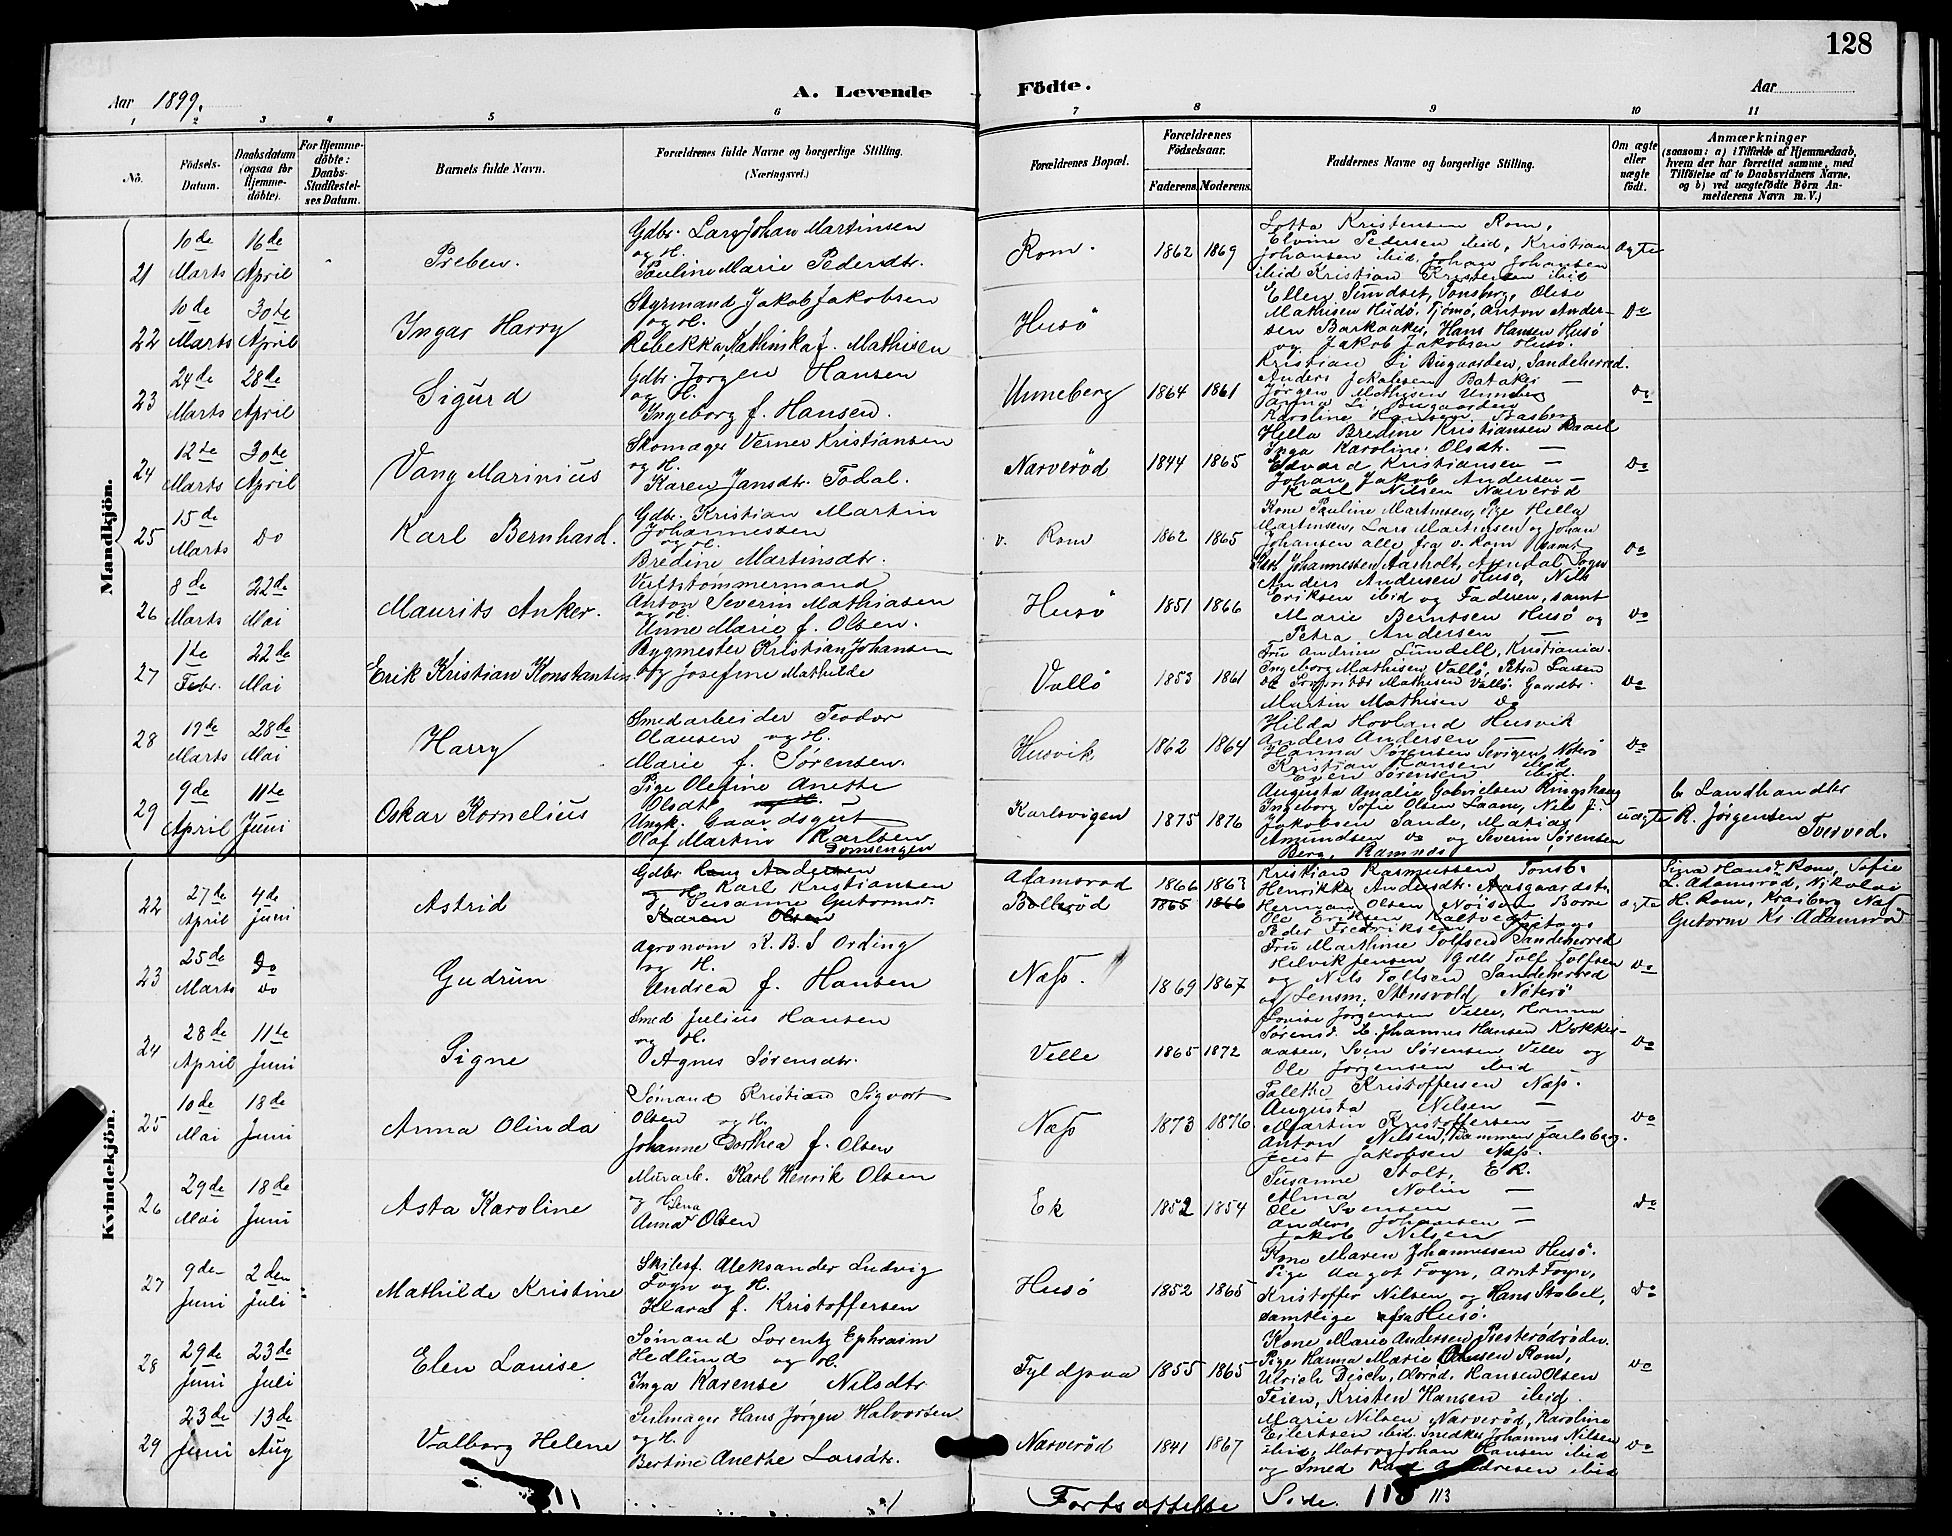 128
Aar 1899.
A. Levende
Födte.
Aar
1 2 3 4 5 6 7 8 9 10 11
No.
Födsels-Datum.
Daabsdatum (ogsaa for Hjemme-döbte).
For Hjemme-döbte: Daabs-Stadfestel-ses Datum.
Barnets fulde Navn.
Forældrenes fulde Navne og borgerlige Stilling.
(Næringsvei.)
Forældrenes Bopæl.
Forældrenes Födselsaar.
Faderens. Moderens.
Faddernes Navne og borgerlige Stilling.
Om ægte eller uægte født.
Anmærkninger
(saasom: a) i Tilfælde af Hjemmedaab,
hvem der har forrettet samme, med
Tilföielse af to Daabsvidners Navne,
og b) ved uægtefödte Börn An-
melderens Navn m. V.)
Mandkjön.
21 10de Marts 16de April Preben.
Gdbr. Lars Johan Martinsen
og H.
Pauline Marie Pedersdtr.
Rom. 1862 1869
Lotta Kristensen Rom,
Elvine Pedersen ibid, Kristian
Johansen ibid, Johan Johansen
ibid Kristian Kristensen ibid
Ægte
22 10de Marts 30te April Ingar Harry
Styrmand Jakob Jakobsen
og H.
Rebekka Kathinka f. Mathisen
Husö
Ellen Sundset, Tönsberg, Olise
Mathisen Hudö, Tjömö, Anton Ander-
sen Barkaaker, Hans Hansen Husö
og Jakob Jakobsen Husö.
Do
23 24de Marts 28de April Sigurd
Gdbr. Jörgen Hansen
og H.
Ingeborg f. Hansen.
Unneberg 1864 1861
Kristian Li Bugaarden, Sandeherred.
Anders Jakobsen Bakaker —
Jörgen Mathisen Unneberg
Do
24 12te Marts 30te April Vang Marinius
Skomager Verner Kristiansen
og H.
Karen Jansdtr. Todal.
Narveröd 1844 1865
Hella Bredine Kristiansen
Inga Karoline Olsdtr. —
Edvard Kristiansen —
Johan Jakob Andersen —
Karl Nilsen Narveröd
Do
25 15de Marts Do Karl Bernhard.
Gdbr. Kristian Martin
Johannessen
og H.
Bredine Martinsdtr.
v. Rom 1862 1865
Kone Pauline Martinsen, Pige Hella
Martinsen, Lars Martinsen og Johan
Johansen alle fra v. Rom samt
Johannessen Aasholt, Andal Sogn
Do
26 8de Marts 22de Mai Maurits Anker.
Verftstömmermand
Anton Severin Mathiasen
og H.
Anne Marie f. Olsen.
Husö 1851 1866
Anders Andersen Husö, Nils
Eriksen ibid og Faderen, samt
Marie Berntsen Husö og
Petra Andersen —
Do
27 1te Febr. 22de Mai Erik Kristian Konstantin
Bygmester Kristian Johansen
og Josefine Mathilde
Vallö 1853 1861
Fru Andrine Lundell, Kristiania.
Ingeborg Mathisen Vallö, Petra Larsen
Mathisen Vallö. Gaardbr.
Martin Mathisen Do
Do
28 19de Marts 28de Mai Harry
Smedarbeider Teodor
Olausen og H.
Marie f. Sörensen.
Husvik 1862 1864
Hilda Hovland Husvik
Anders Andersen —
Hanna Sörensen Nöterö
Kristian Hansen ibid
Even Sörensen ibid.
Do
29 9de April 11te Juni Oskar Kornelius
Pige Olefine Anette
Olsdtr. og H.
Ungk. Gaardsgut
Olaf Martin Karlsen
Tomsengen
Karlsvigen 1875 1876
Augusta Amalie Gabrielsen Ringshaug
Ingeborg Sofie Olsen Laane, Nils J.
Jakobsen Sande, Matias
Amundsen Do og Severin Sörensen
Berg, Ramnes
uægte
b Landhandler
R. Jörgensen
Tverved.
Kvindekjön.
22 27de April 4de Juni Astrid
Gdbr. Hans Andersen
og H. Karl Kristiansen
Susanne Gutormsdr.
Karen Olsen
Adamsröd 1866 1863
Bolleröd 1865 1866
Kristian Rasmussen Tönsb.
Henrikke Andersdtr. Aasgaardstr.
Herman Olsen Borre
Ole Eriksen
Peder Fredriksen
ægte
Signe Hansdtr. Rom, Sofie
L. Adamsröd, Nikolai
H. Rom,
Gutorm Kr. Adamsröd
23 25de Marts Do Do Gudrun
Agronom K. B. S Ording
og H.
Andrea f. Hansen
Næss. 1869 1867
Fru Marthine Tolfsen Sandeherred
Hilvik Jensen Gdb. Tolf Tolfsen
og Nils Tolfsen Sandeherred
og Lensm. Stensvold, Nöterö
Do
24 28de April 11te Juni Signe
Smed Julius Hansen
og H.
Agnes Sörensdtr.
Velle 1865 1872
Lovise Jörgensen Velle, Hanna
Sörensd. Johannes Hansen Kjökke-
aasen, Sven Sörensen Velle og
Ole Jörgensen ibid
Do
25 10de Mai 18de Juni Anna Olinda
Sömand Kristian Sigvart
Olsen og H.
Johanne Dorthea f. Olsen
Næss 1873 1876
Kristoffersen Næss.
Augusta Nilsen —
Martin Kristoffersen —
Anton Nilsen, Jarlsberg.
Just Jakobsen Næss.
Do
26 29de Mai 18de Juni Asta Karoline
Murarb. Karl Henrik Olsen
og H.
Anna Lena Olsen
Ek 1852 1854
Susanne Stolt, Ek.
Alma Nolin —
Ole Svensen —
Anders Johansen —
Jakob Nilsen
Do
27 9de Juni 2den Juli Mathilde Kristine
Skibsf. Aleksander Ludvig
Foyn og H.
Klara f. Kristoffersen
Husö 1852 1865
Kone Maren Johannessen Husö.
Pige Aagot Foyn, Arnt Foyn,
Kristoffer Nilsen og Hans Stabel,
samtlige af Husö.
Do
28 29de Juni 23de Juli Elen Louise
Sömand Lorentz Ephraim
Hedlund og H.
Inga Karense Nilsdtr
Fyldpaa 1855 1865
Kone Marie Andersen Presterödröden.
Pige Hanna Marie Olausen Rom,
Ulrich Disch, Olsröd. Hansen Olsen
Teien, Kristen Hansen ibid.
Do
29 23de Juni 13de Aug Valborg Helene
Seilmager Hans Jörgen Halvorsen
og H.
Bertine Anethe Larsdtr.
Narveröd 1841 1867
Marie Nilsen Narveröd, Karoline
Eilertsen ibid. Snedker Johannes Nilsen
ibid, Matros Johan Hansen ibid
og Smed Karl Andresen ibid
Do
Fortsættelse Side. 113 113